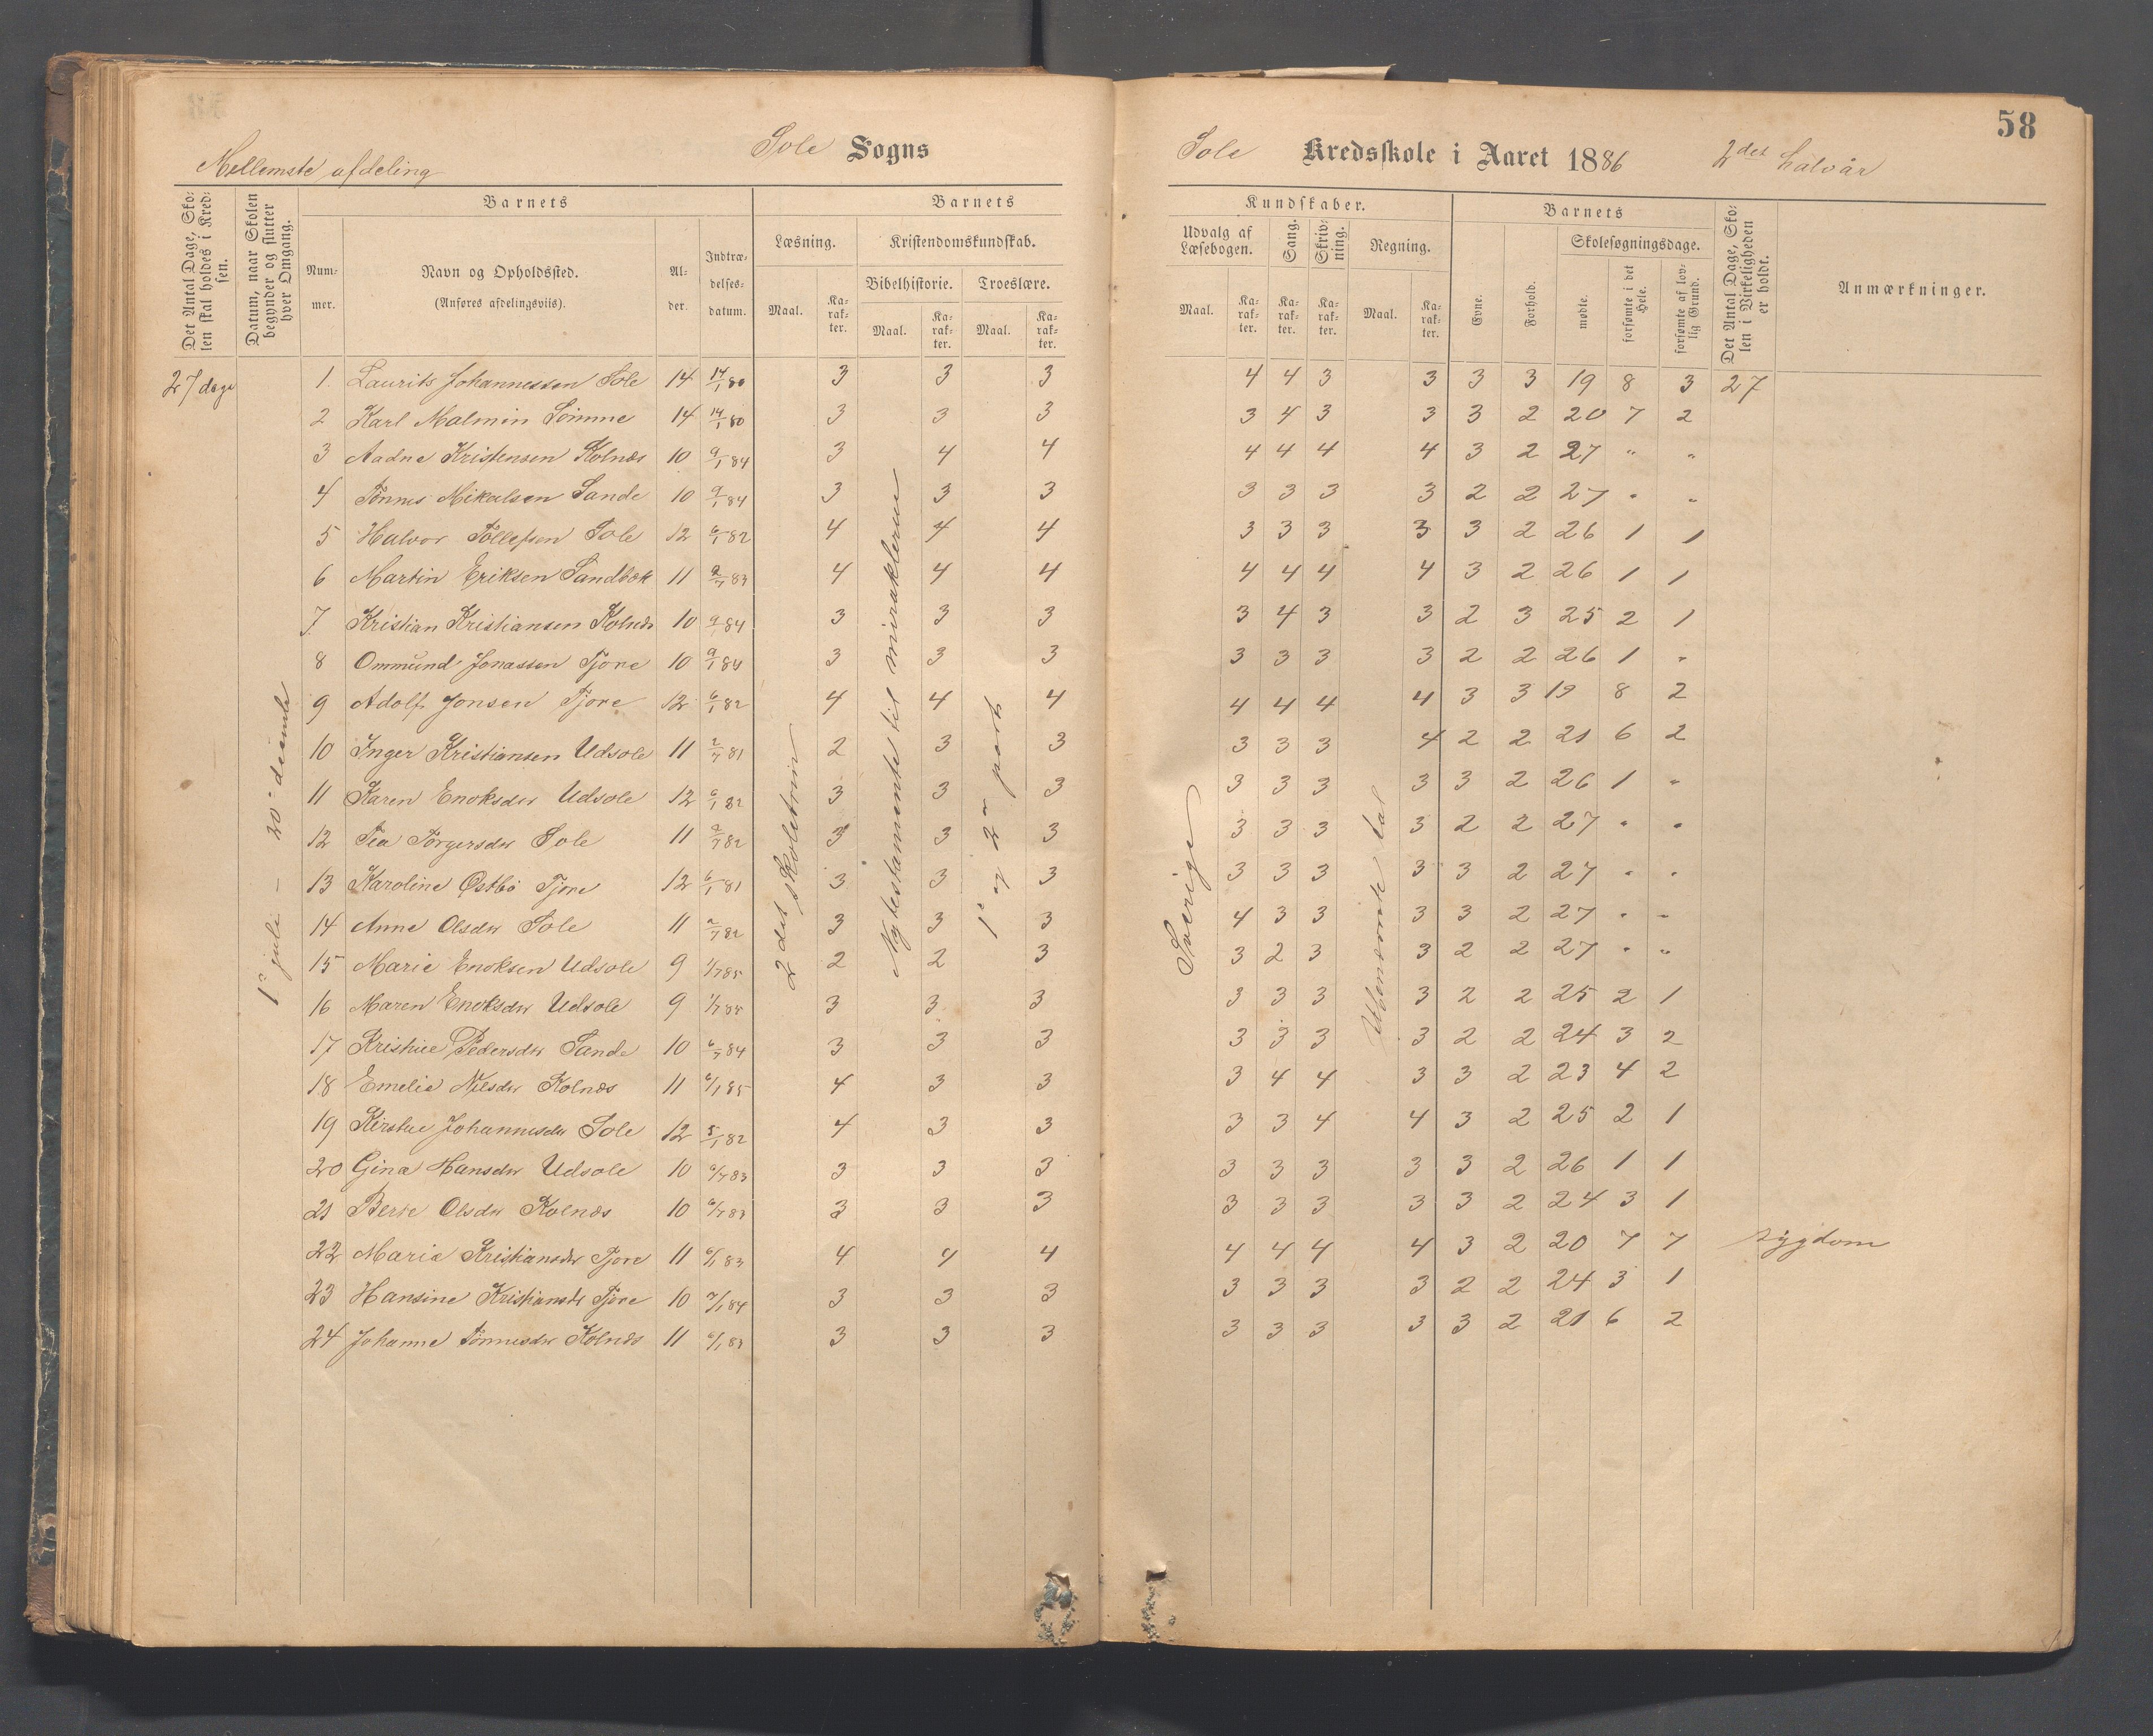 58
Mellemste afdeling
Sole Sogns
Sole Kredsskole i Aaret 1886 2det halvår
Det Antal Dage, Skolen skal holdes i Kredsen.
Datum, naar Skolen begynder og slutter hver Omgang.
Barnets
Nummer.
Navn og Opholdssted.
(Anføres afdelingsviis).
Alder.
Indtrædelsesdatum.
Barnets
Læsning.
Kristendomskundskab.
Bibelhistorie.
Troeslære.
Maal.
Karakter.
Maal.
Karakter.
Maal.
Karakter.
Kundskaber.
Udvalg af Læsebogen.
Sang.
Skrivning.
Regning.
Maal.
Karakter.
Karakter.
Karakter.
Maal.
Karakter.
Barnets
Evne.
Forhold.
Skolesøgningsdage.
mødte.
forsømte i det Hele.
forsømte af lovlig Grund.
Det Antal Dage, Skolen i Virkeligheden er holdt.
Anmærkninger.
27 dage
1 juli - 20 decembr
2det skoletrin
Nytestamente til miraklerne
1 og 2n part
Sverige
Ubenævnte tal
1. Laurits Johannessen Sole 14 14/1 80 3 3 3 4 4 3 3 3 3 19 8 3 27
2 Karl Malmin Sømme 14 14/1 80 3 3 3 3 4 3 3 3 2 20 7 2
3 Aadne Kristensen Kolnes 10 9/1 84 3 4 4 4 4 4 4 3 2 27 " "
4 Tønnes Mikalsen Sande 10 9/1 84 3 3 3 3 3 3 3 2 2 27 " "
5 Halvor Tollefsen Sole 12 6/1 82 4 4 4 3 3 3 3 3 2 26 1 1
6 Martin Eriksen Sandbæk 11 2/7 83 4 4 4 4 4 4 4 3 2 26 1 1
7. Kristian Kristiansen Kolnes 10 9/1 84 3 3 3 3 4 3 3 2 3 25 2 1
8 Ommund Jonassen Tjore 10 9/1 84 3 3 3 3 3 3 3 2 2 26 1 "
9 Adolf Jonsen Tjore 12 6/1 82 4 4 4 4 4 4 4 3 3 19 8 2
10 Inger Kristiansen Udsole 11 2/7 81 2 3 3 3 3 3 4 2 2 21 6 2
11 Karen Enoksdtr Udsole 12 6/1 82 3 3 3 3 3 3 3 3 2 26 1 "
12 Tea Torgersdtr Sole 11 2/7 82 3 3 3 3 3 3 3 2 2 27 " "
13 Karoline Østbø Tjore 12 6/1 81 3 3 3 3 3 3 3 3 2 27 " "
14 Anne Olsdtr Sole 11 2/7 82 3 3 3 4 3 3 3 3 2 27 " "
15 Marie Enoksen Udsole 9 1/7 85 2 2 3 3 2 3 3 2 2 27 " "
16 Maren Enoksdtr Udsole 9 1/7 85 3 3 3 3 3 3 3 2 2 25 2 1
17 Kristine Pedersdtr Sande 10 6/7 84 3 3 3 3 3 3 3 2 2 24 3 2
18 Emelie Nilsdtr Kolnes 11 6/1 85 4 3 3 3 4 4 3 3 2 23 4 2
19 Kirstine Johannesdtr Sole 12 5/1 82 4 3 3 3 3 4 4 3 2 25 2 1
20 Gina Hansdtr Udsole 10 6/7 83 3 3 3 3 3 3 3 3 2 26 1 1
21 Berte Olsdtr Kolnes 10 6/7 83 3 3 3 3 3 3 3 3 2 24 3 1
22 Maria Kristiansdtr Tjore 11 6/1 83 4 4 4 4 4 4 4 3 2 20 7 7 sygdom
23 Hansine Kristiansdtr Tjore 10 7/1 84 3 3 3 3 3 3 3 2 2 24 3 1
24 Johanne Tønnesdtr Kolnes 11 6/1 83 3 3 3 3 3 3 3 3 2 21 6 2